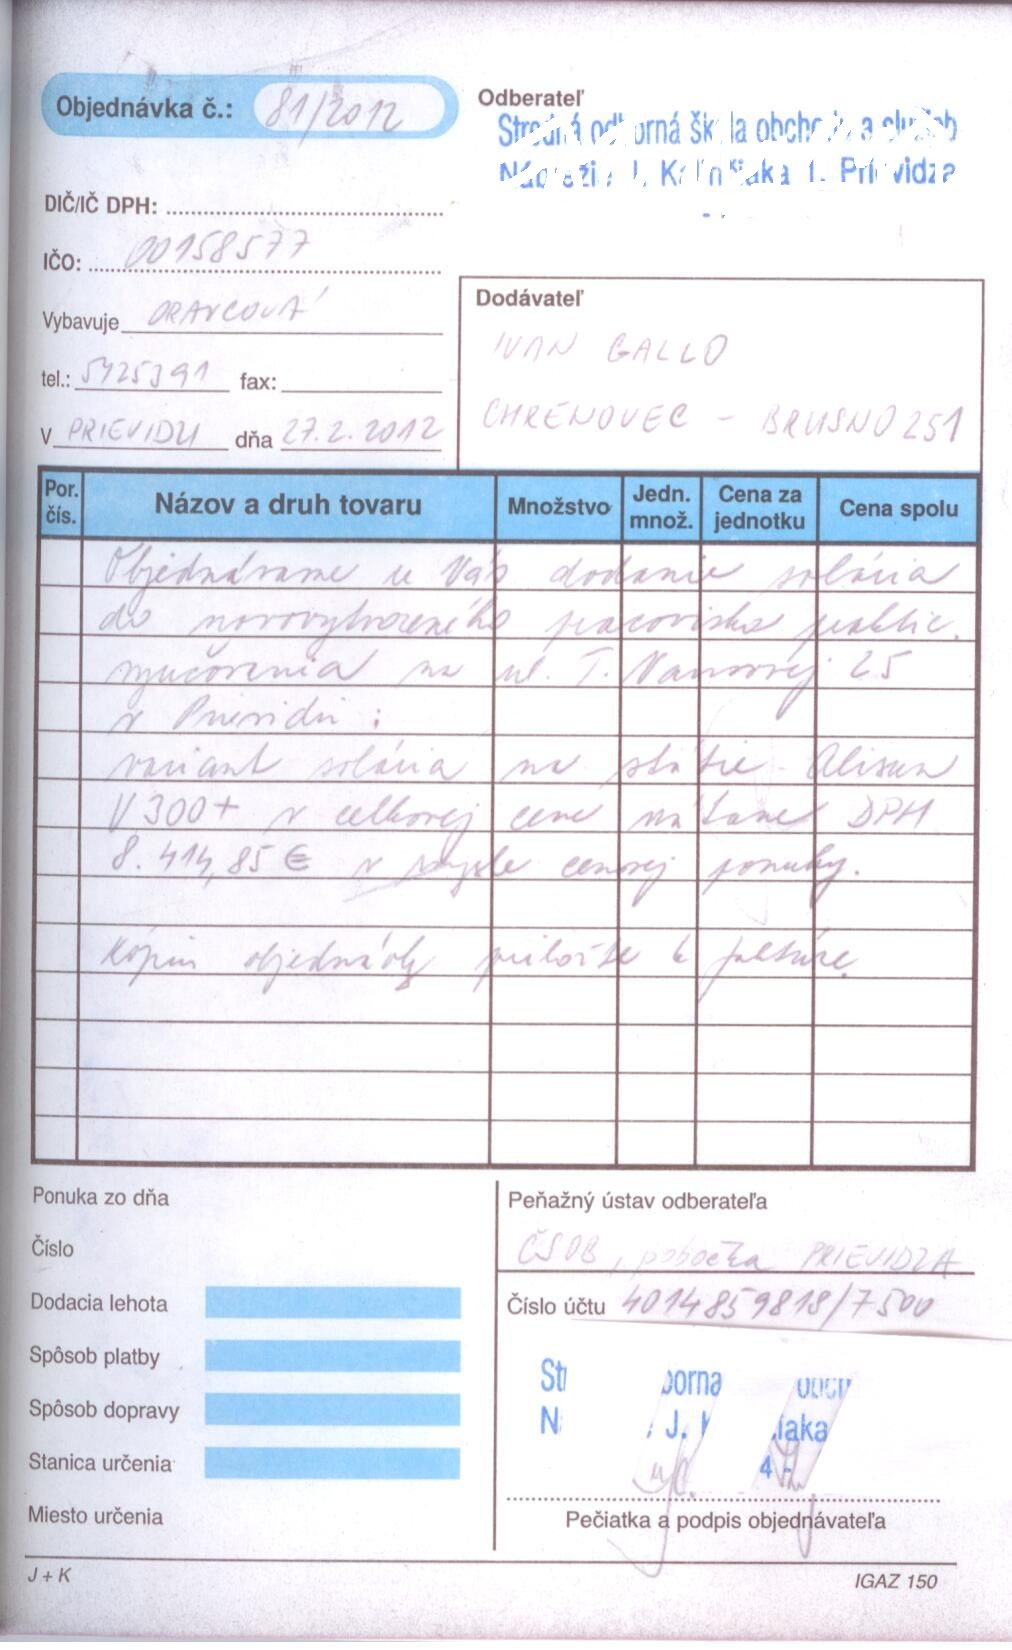 Objednávka č.: 81/2012
Odberateľ
Stredná odborná škola obchodu a služieb
Nábrežie J. Kalinčiaka 1, Prievidza
DIČ/IČ DPH:
IČO: 00158577
Vybavuje ORAVCOVÁ
tel.: 5425391 fax:
V PRIEVIDZI dňa 27.2.2012
Dodávateľ
IVAN GALLO
CHRENOVEC - BRUSNO 251
Por. čís.
Názov a druh tovaru
Množstvo
Jedn. množ.
Cena za jednotku
Cena spolu
Objednávame u Vás dodanie solária
do novovytvoreného pracoviska praktic.
vyučovania na ul. T. Vansovej 25
v Prievidzi :
variant solária na státie - Alisun
V 300+ v celkovej cene vrátane DPH
8.414,85 € v zmysle cenovej ponuky.
Kópiu objednávky priložte k faktúre.
Ponuka zo dňa
Číslo
Dodacia lehota
Spôsob platby
Spôsob dopravy
Stanica určenia
Miesto určenia
Peňažný ústav odberateľa
ČSOB, pobočka PRIEVIDZA
Číslo účtu 4014859818/7500
Pečiatka a podpis objednávateľa
J + K
IGAZ 150